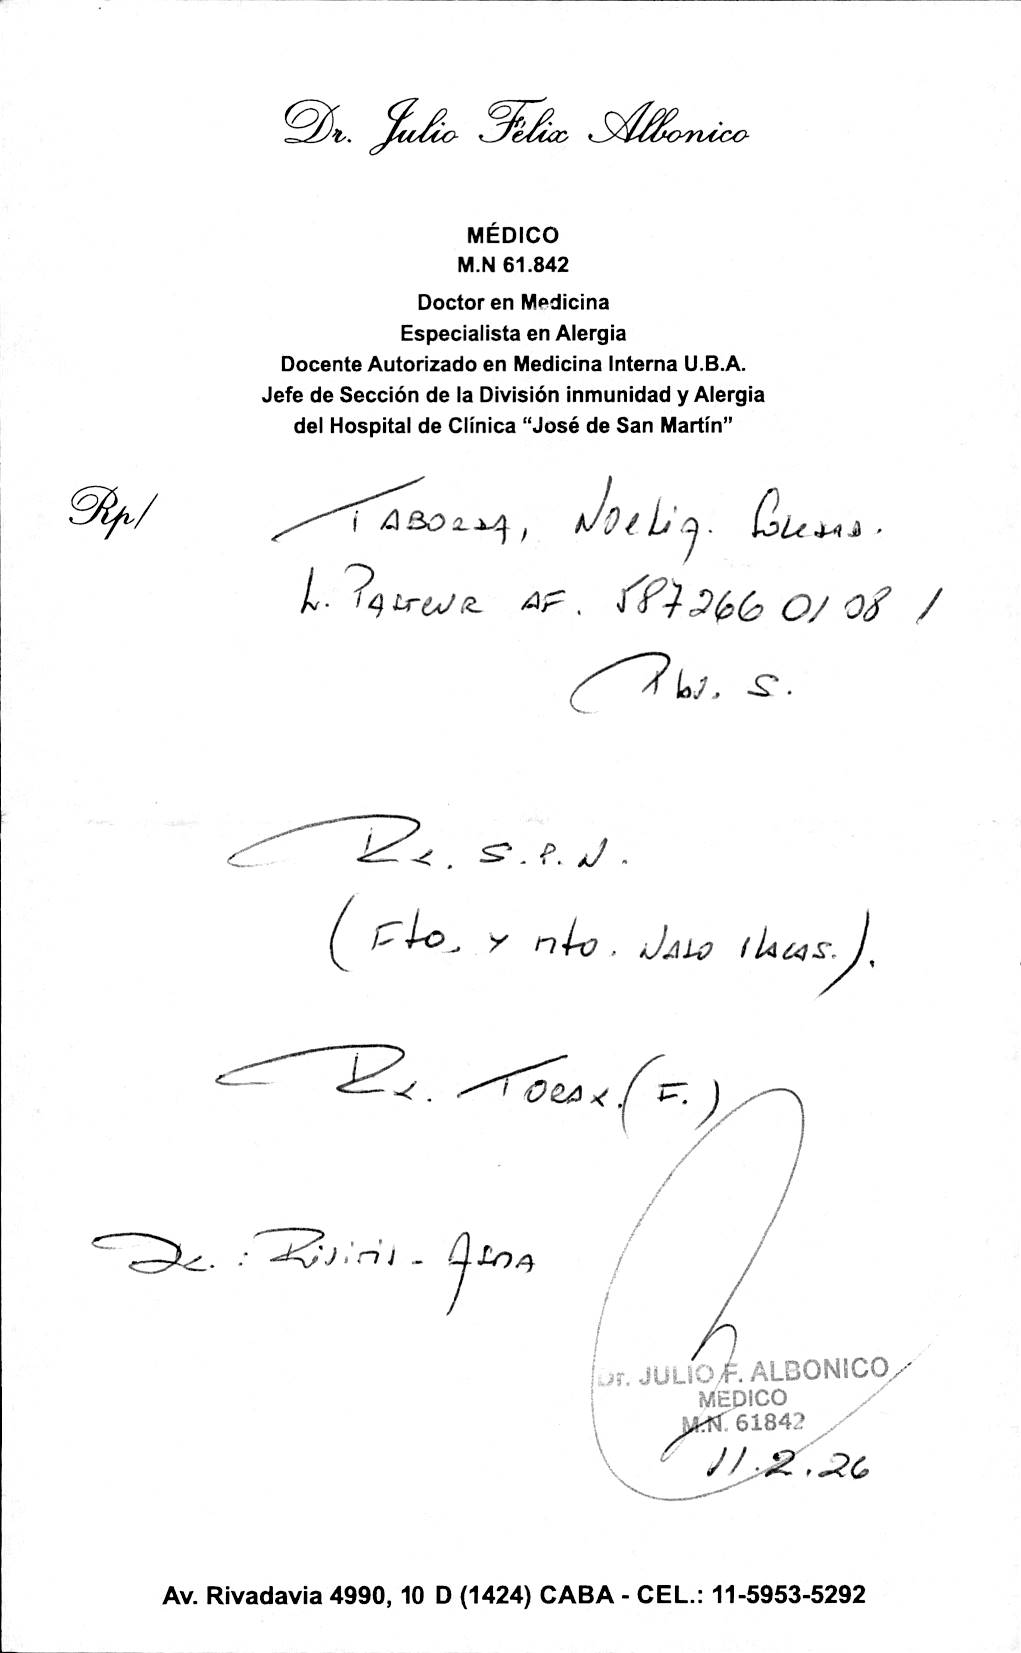 Dr. Julio Félix Albonico
MÉDICO
M.N 61.842
Doctor en Medicina
Especialista en Alergia
Docente Autorizado en Medicina Interna U.B.A.
Jefe de Sección de la División inmunidad y Alergia
del Hospital de Clínica “José de San Martín”
Rp/ TABORDA, Noelia.
L. PASTEUR AF. 587266 01 08 1
S.
Rx. S.P.N.
(Fto. y Mto. NASO
Rx. TORAX. (F.)
Rinitis - ASMA
Dr. JULIO F. ALBONICO
MEDICO
M.N. 61842
11.2.26
Av. Rivadavia 4990, 10 D (1424) CABA - CEL.: 11-5953-5292